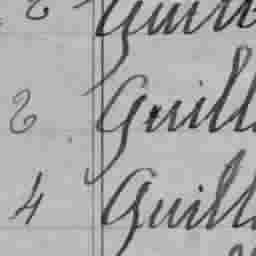 2 Guill
2 Guill
4 Guill